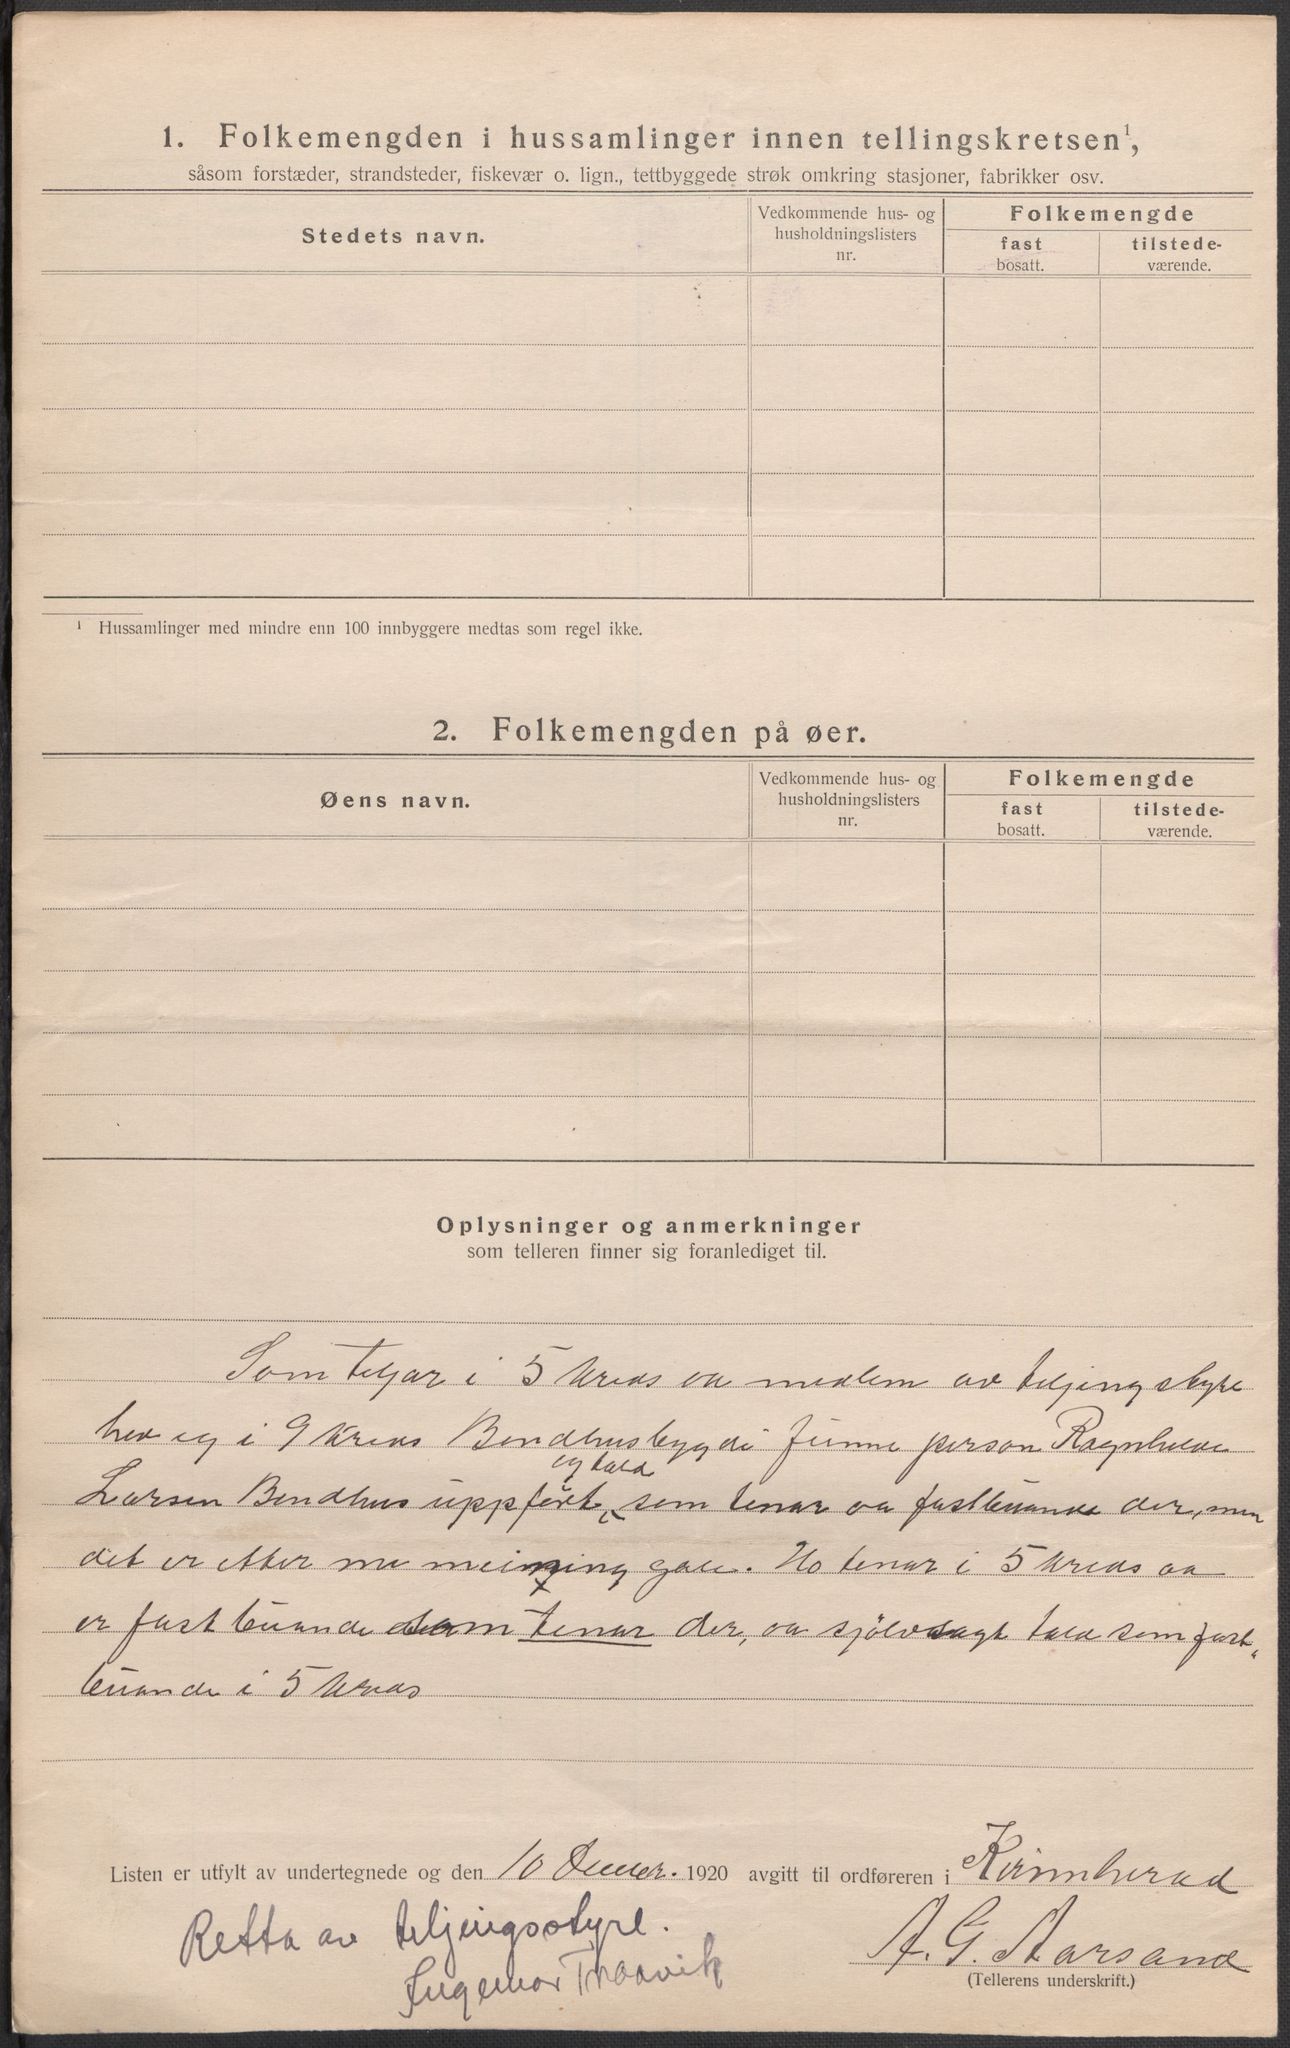 1. Folkemengden i hussamlinger innen tellingskretsen¹,
såsom forstæder, strandsteder, fiskevær o. lign., tettbyggede strøk omkring stasjoner, fabrikker osv.
Stedets navn.
Vedkommende hus- og
husholdningslisters
nr.
Folkemengde
fast
bosatt.
tilstede-
værende.
¹ Hussamlinger med mindre enn 100 innbyggere medtas som regel ikke.
2. Folkemengden på øer.
Øens navn.
Vedkommende hus- og
husholdningslisters
nr.
Folkemengde
fast
bosatt.
tilstede-
værende.
Oplysninger og anmerkninger
som telleren finner sig foranlediget til.
Som teljar i 5 kreds oa medlem av teljingstyre
hev eg i 9 kreds Bondhusbygdi funne person Ragnhilde
og tald
Larsen Bondhus uppført som tenar oa fastbuande der, men
det er etter me meining gale. Ho tenar i 5 kreds oa
er fast buande som tenar der, oa sjölvsagt tald som fast-
buande i 5 kreds
Listen er utfylt av undertegnede og den 10 Decbr. 1920 avgitt til ordføreren i Kvinnherad
Retta av teljingsstyre.
A. G. Aarsand
Ingemar Traavik
(Tellerens underskrift.)